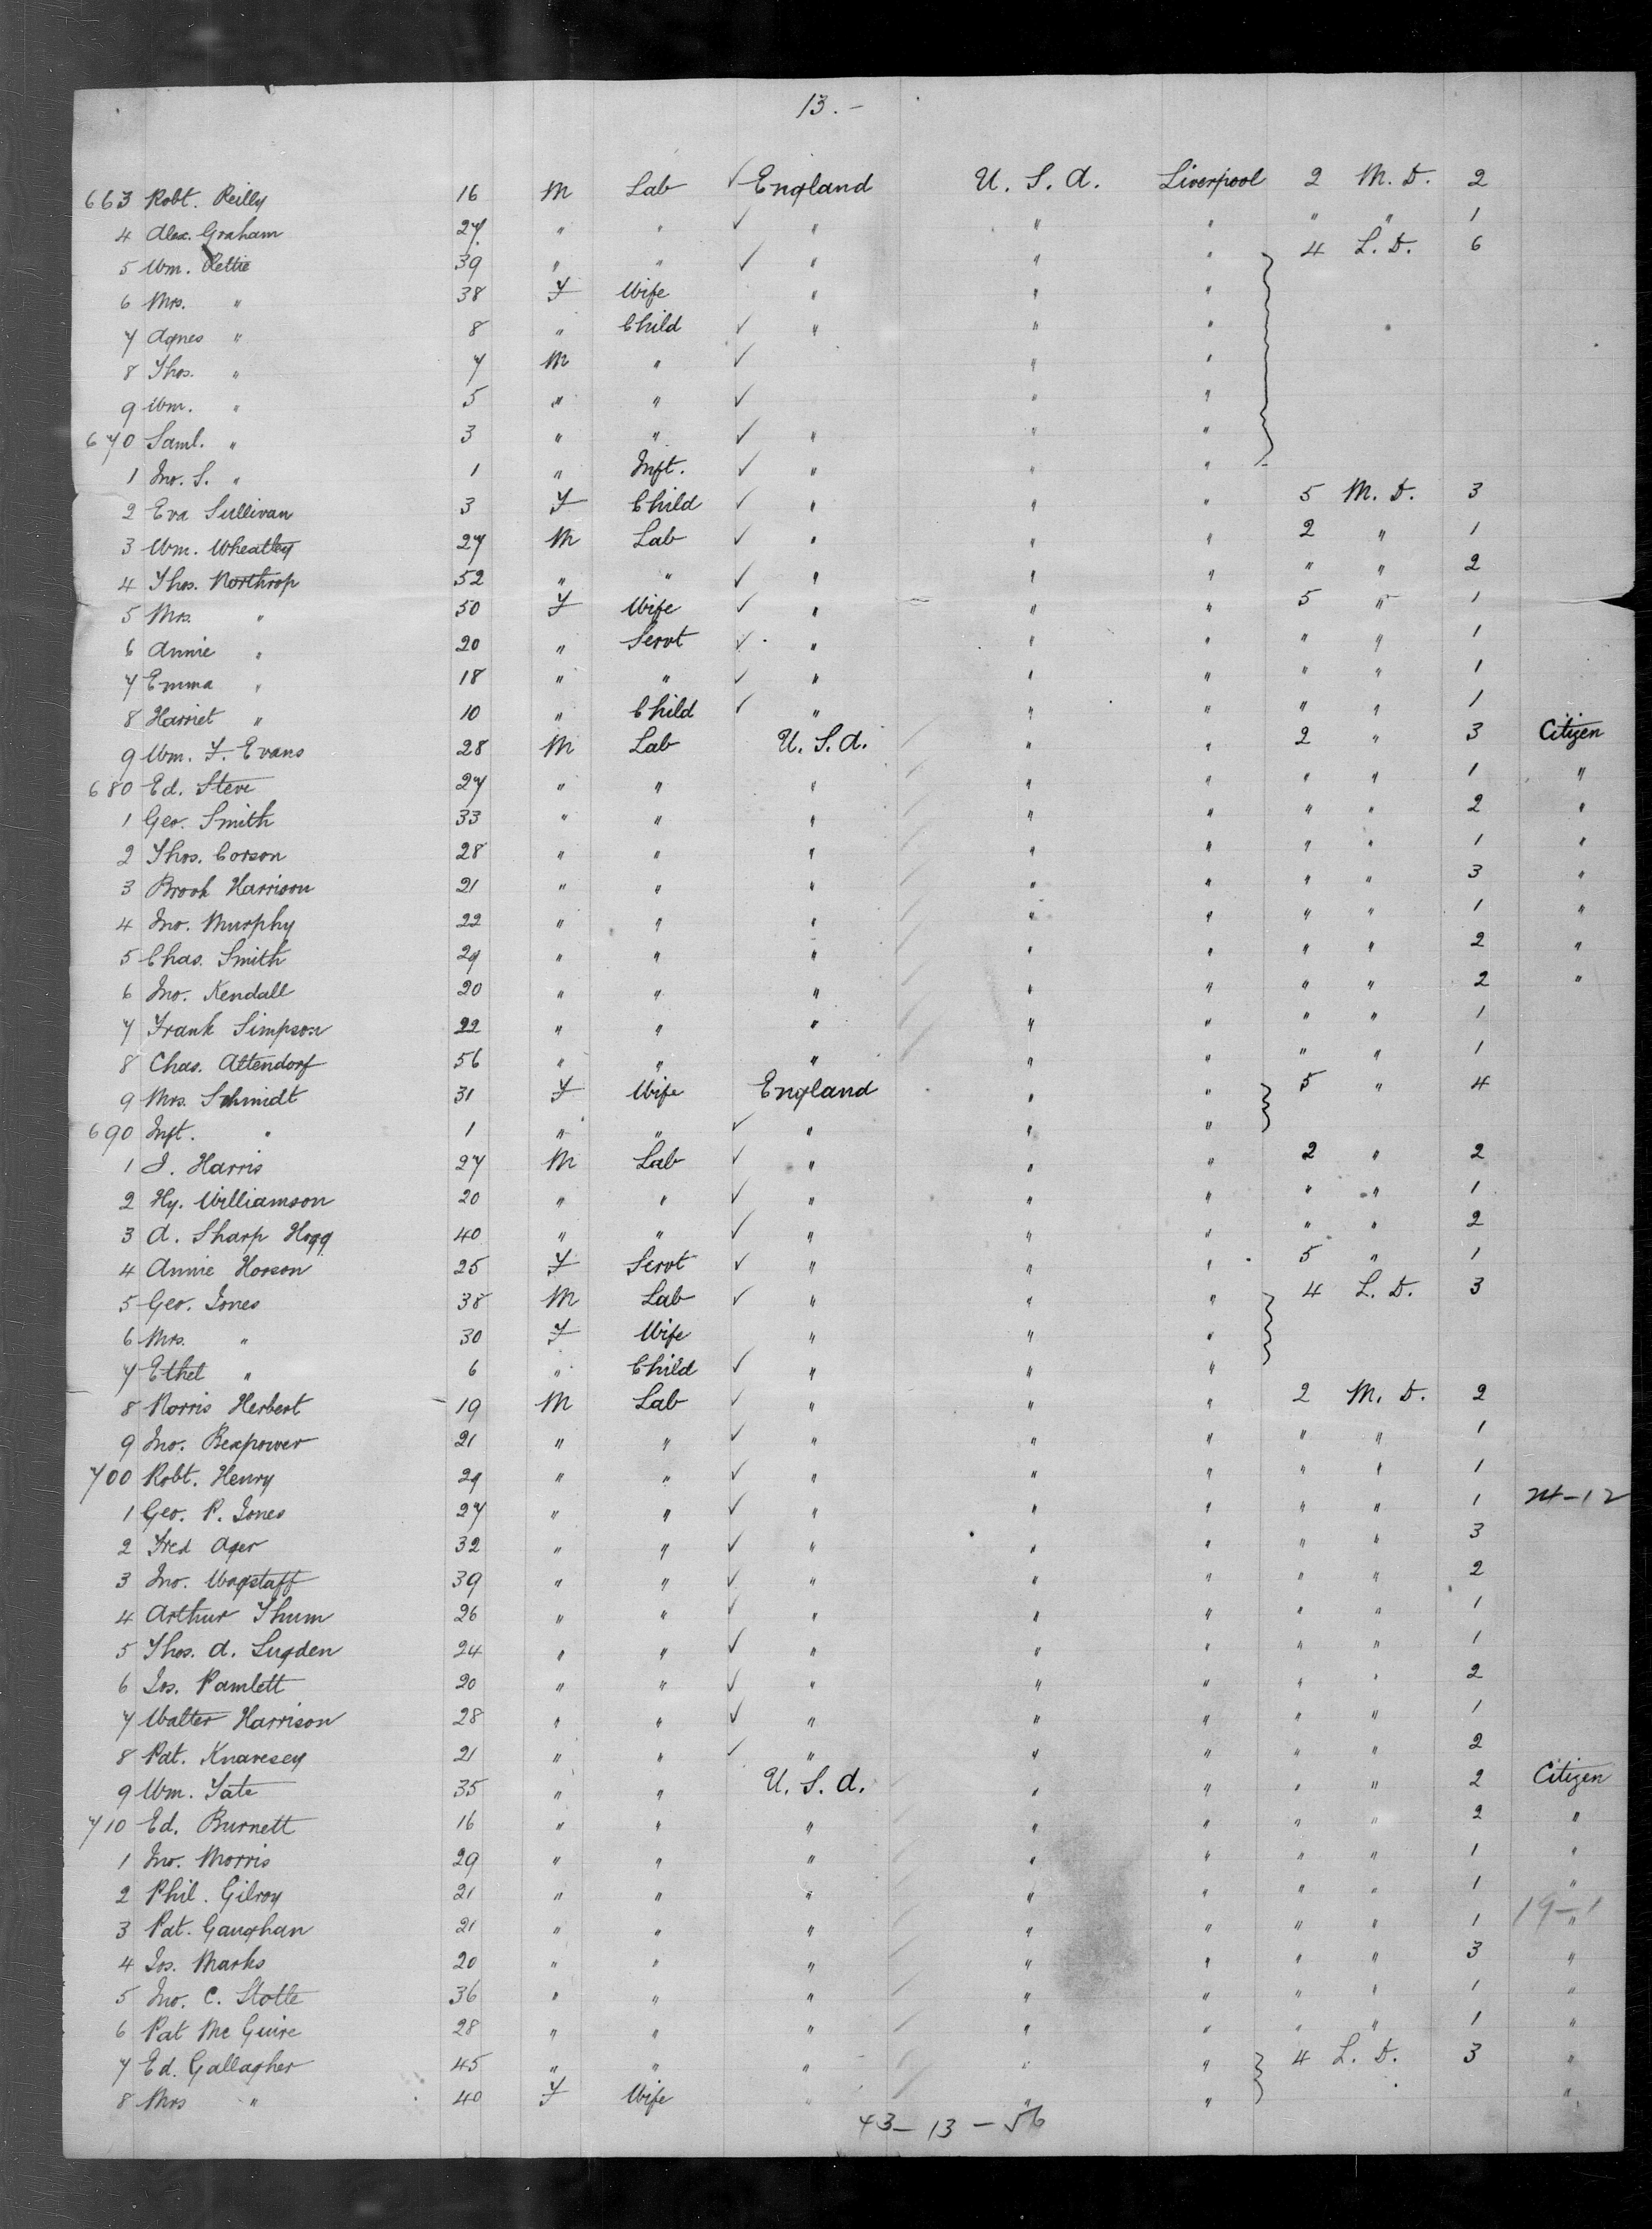 13.-
663 Robt. Reilly 16 M Lab ✓ England U. S. A. Liverpool 2 M. D. 2
4 Alex. Graham 27 " " ✓ " " " " " 1
5 Wm. Rettie 39 " " ✓ " " " 4 L. D. 6
6 Mrs. " 38 F Wife " " "
7 Agnes " 8 " Child ✓ " " "
8 Thos. " 7 M " ✓ " "
9 Wm. " 5 " " ✓ " "
670 Saml. " 3 " " ✓ " " "
1 Jno. S. " 1 " Inft. ✓ " " "
2 Eva Sullivan 3 F Child ✓ " " " 5 M. D. 3
3 Wm. Wheatley 27 M Lab ✓ " " " 2 " 1
4 Thos. Northrop 52 " " ✓ " " " " " 2
5 Mrs. " 50 F Wife ✓ " " " 5 " 1
6 Annie " 20 " Servt ✓ " " " " " 1
7 Emma " 18 " " ✓ " " " " " 1
8 Harriet " 10 " Child ✓ " " " " " 1
9 Wm. F. Evans 28 M Lab U. S. A. " " 2 " 3 Citizen
680 Ed. Steve 27 " " " " " " " 1 "
1 Geo. Smith 33 " " " " " " " 2 "
2 Thos. Corson 28 " " " " " " " 1 "
3 Brook Harrison 21 " " " " " " " 3 "
4 Jno. Murphy 22 " " " " " " " 1 "
5 Chas. Smith 29 " " " " " " " 2 "
6 Jno. Kendall 20 " " " " " " " 2 "
7 Frank Simpson 22 " " " " " " " 1
8 Chas. Attendorf 56 " " " " " " " 1
9 Mrs. Schmidt 31 F Wife England " " 5 " 4
690 Inft. " 1 " " ✓ " " "
1 J. Harris 27 M Lab ✓ " " " 2 " 2
2 Hy. Williamson 20 " " ✓ " " " " " 1
3 A. Sharp Hogg 40 " " ✓ " " " " " 2
4 Annie Horson 25 F Servt ✓ " " " 5 " 1
5 Geo. Jones 38 M Lab ✓ " " " 4 L. D. 3
6 Mrs. " 30 F Wife " " "
7 Ethel " 6 " Child ✓ " " "
8 Norris Herbert 19 M Lab ✓ " " " 2 M. D. 2
9 Jno. Bexpower 21 " " ✓ " " " " " 1
700 Robt. Henry 29 " " ✓ " " " " " 1
1 Geo. P. Jones 27 " " ✓ " " " " " 1 24-12
2 Fred Ager 32 " " ✓ " " " " " 3
3 Jno. Wagstaff 39 " " ✓ " " " " " 2
4 Arthur Thum 26 " " ✓ " " " " " 1
5 Thos. A. Lugden 24 " " ✓ " " " " " 1
6 Jos. Pamlett 20 " " ✓ " " " " " 2
7 Walter Harrison 28 " " ✓ " " " " " 1
8 Pat. Knavesey 21 " " ✓ " " " " " 2
9 Wm. Tate 35 " " U. S. A. " " " " 2 Citizen
710 Ed. Burnett 16 " " " " " " " 2 "
1 Jno. Morris 29 " " " " " " " 1 "
2 Phil. Gilroy 21 " " " " " " " 1 "
3 Pat. Gaughan 21 " " " " " " " 1 " 19-1
4 Jos. Marks 20 " " " " " " " 3 "
5 Jno. C. Stotle 36 " " " " " " " 1 "
6 Pat Mc Guire 28 " " " " " " " 1 "
7 Ed. Gallagher 45 " " " " " 4 L. D. 3 "
8 Mrs " 40 F Wife " " " "
43-13-56